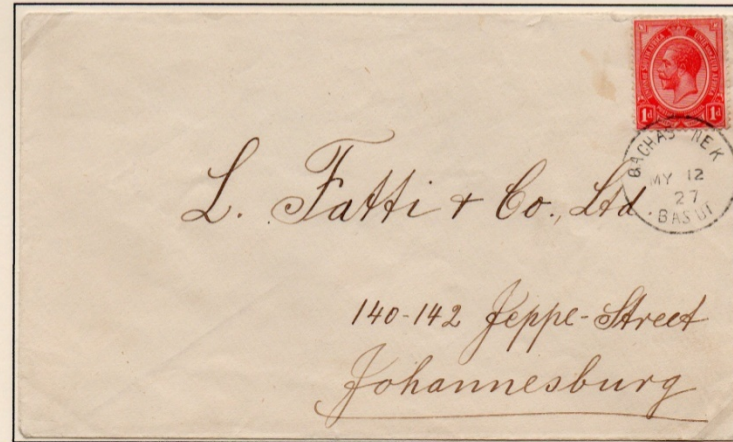 1d 1d
NEK
MY 12
27
L. Fatti & Co., Ltd
140-142 Jeppe-Street
Johannesburg